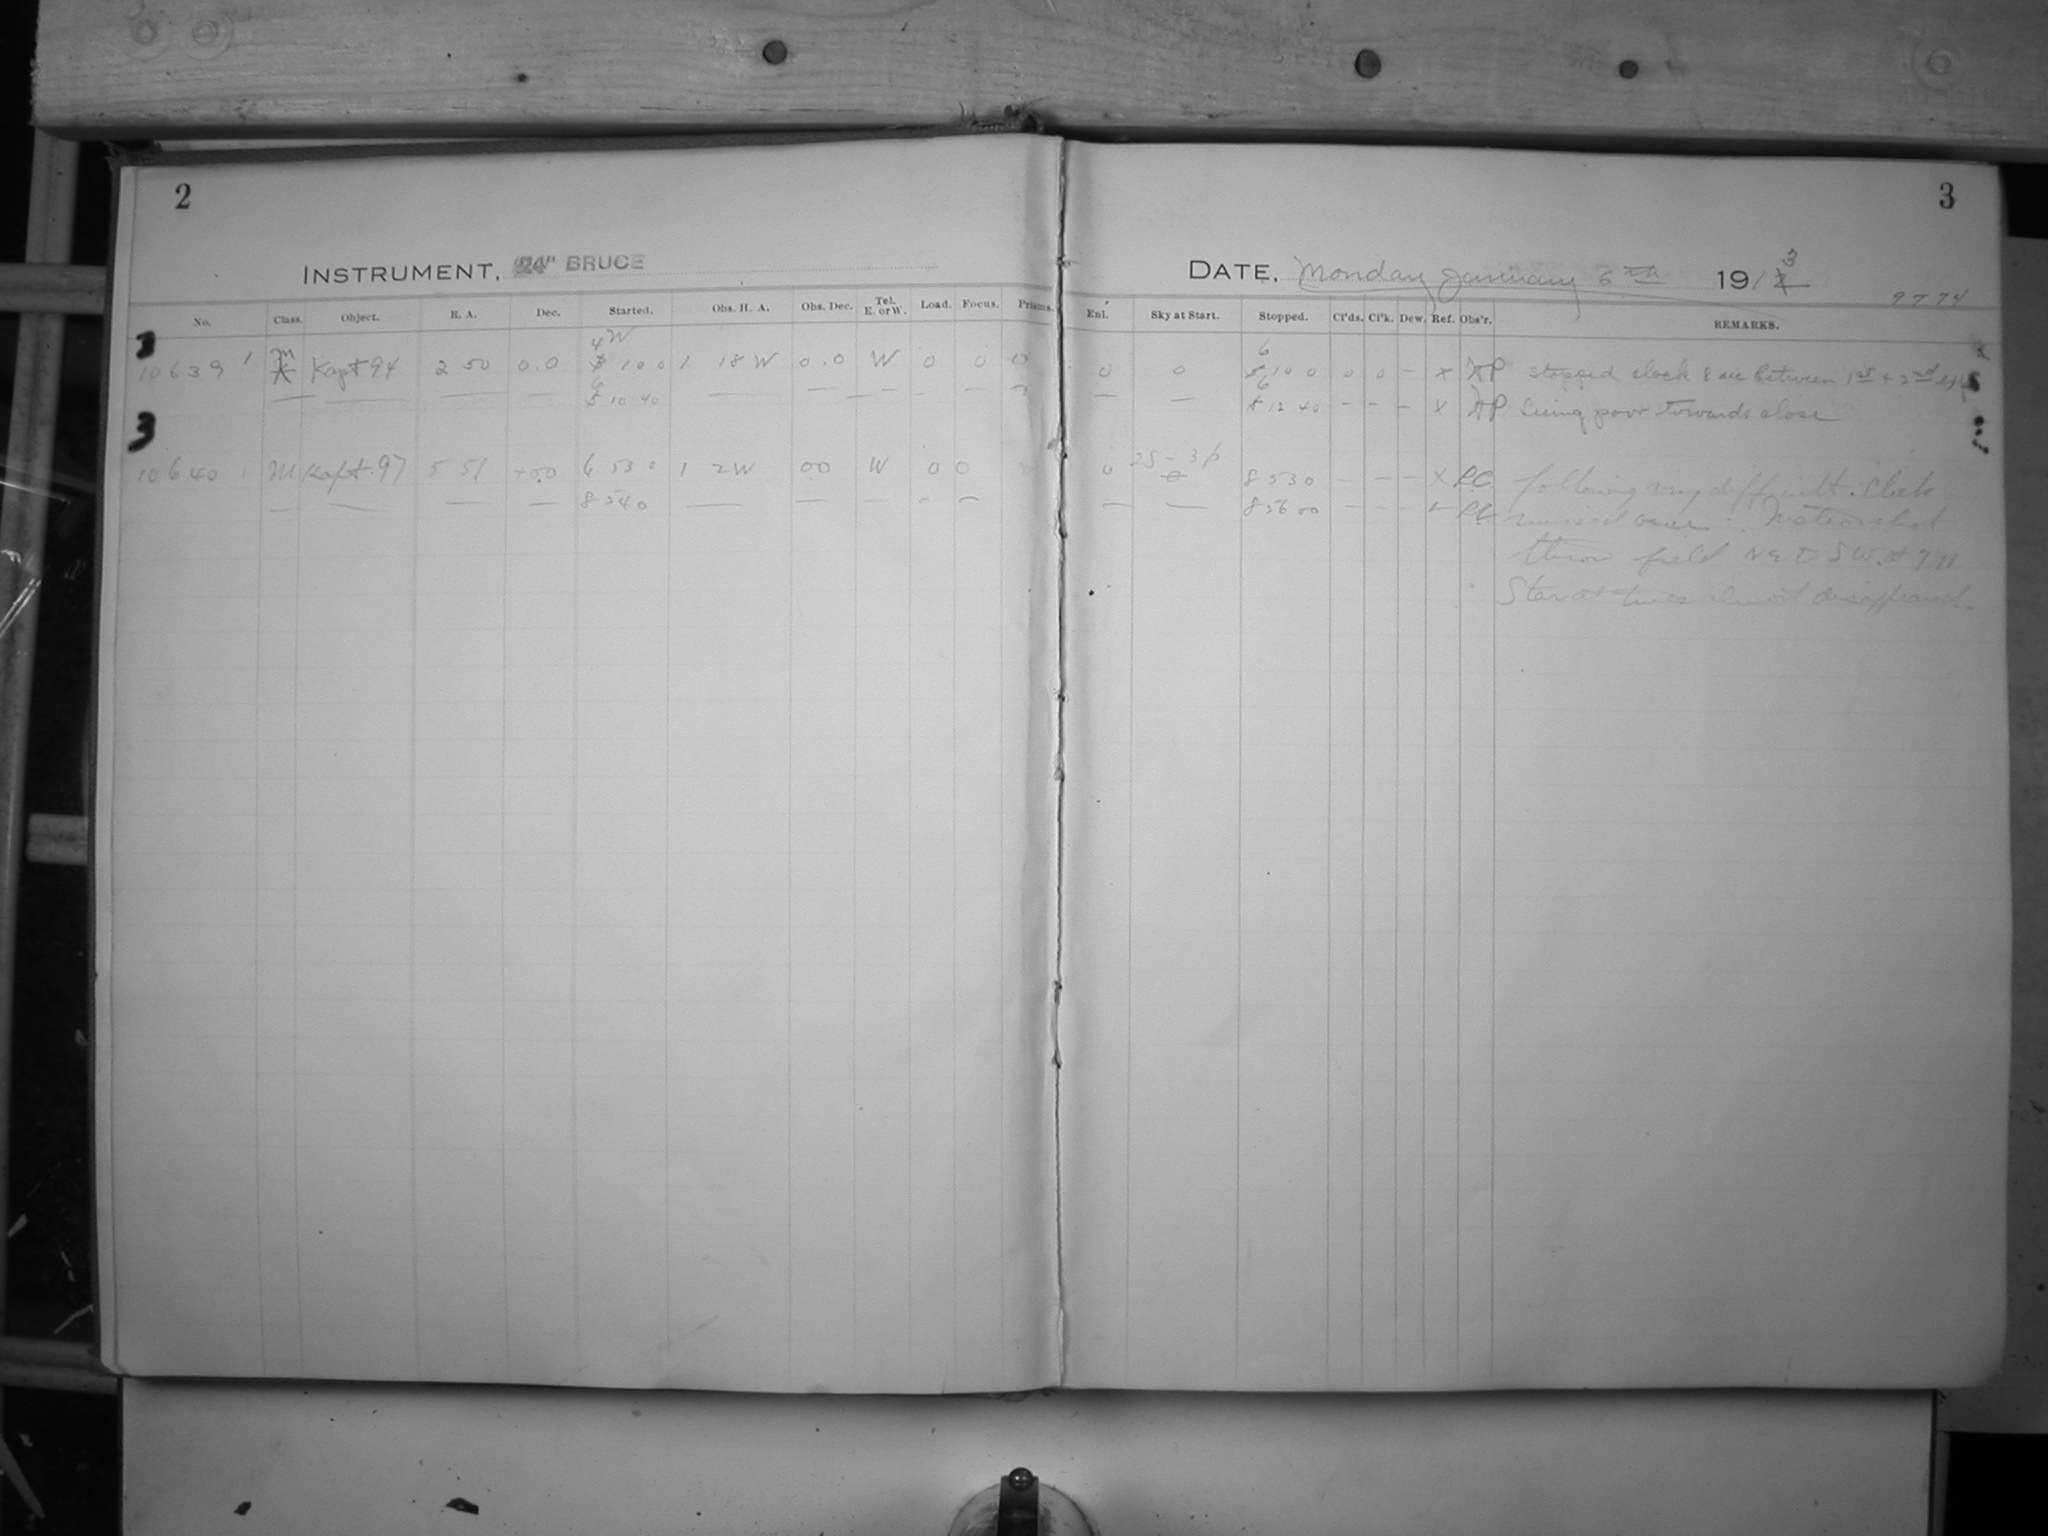 2
3
INSTRUMENT, 24" BRUCE
DATE, Monday January 6th 1913
9774
No. Class. Object. R. A. Dec. Started. Obs. H. A. Obs. Dec. Tel. E. or W. Load. Focus. Prisms. Enl. Sky at Start. Stopped. Cl'ds. Cl'k. Dew. Ref. Obs'r. REMARKS.
3
10639 1 M Kapt 94 2 50 0.0 4 10 0 1 18 W 0.0 W 0 0 0 0 0 6 10 0 0 0 — x AP stopped clock 8 sec between 1st + 2nd
— — — — 6 10 40 — — — — — — — 6 12 40 — — — x AP Seeing poor towards close
3
10640 1 M Kapt. 97 5 51 +0.0 6 53 0 1 2 W 00 W 0 0 0 2S - 3p 8 53 0 — — — x P.C. following very difficult. Clock
— — — — 8 54 0 — — — — — — — 8 56 00 — — — missed once. Meteor shot
throu field NE to SW. at 7 11
Star at times almost disappeared.